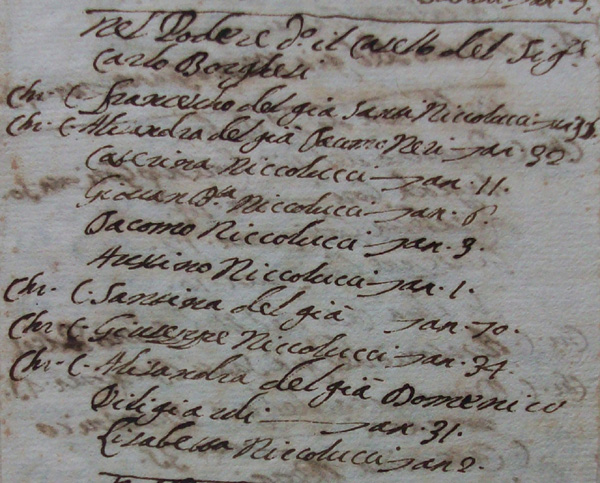 Nel Podere d.º il Casello del Sig.r
Carlo Borghesi
Ch. C. Francesco del già Santi Niccolucci an.
Ch. C. Alisandra del già Jacomo Neri an. 32.
Caterina Niccolucci an. 11.
Giovan Bta Niccolucci an. 6.
Jacomo Niccolucci an. 3.
Niccolucci an. 1.
Ch. C. Santina del già an. 70.
Ch. C. Giuseppe Niccolucci an. 34.
Ch. C. Alisandra del già Domenico
Diligiardi an. 31.
Lisabetta Niccolucci an 2.